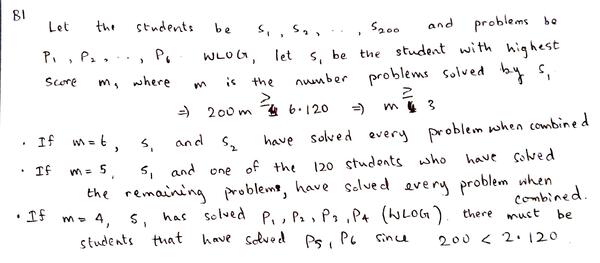 B1
Let the students be s₁, s₂, . . , s₂₀₀ and problems be
P₁, P₂, . . , P₆. WLOG, let s₁ be the student with highest
score m, where m is the number problems solved by s₁
⇒ 200m ≥ 6·120 ⇒ m ≥ 3
· If m=6, s₁ and s₂ have solved every problem when combined
· If m=5, s₁ and one of the 120 students who have solved
the remaining problems, have solved every problem when
combined.
· If m=4, s₁ has solved P₁, P₂, P₃, P₄ (WLOG). there must be
students that have solved P₅, P₆ since 200 < 2·120